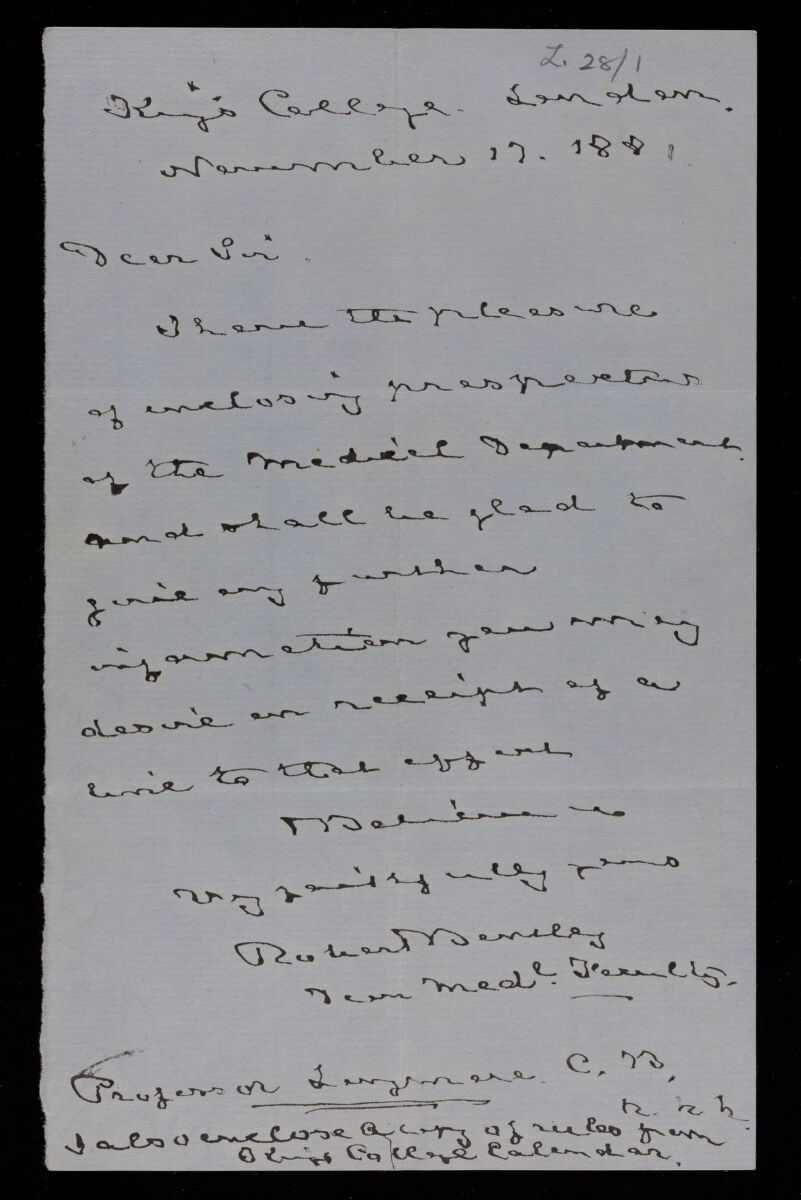 L. 28/1
King's College. London.
November 17. 1881
Dear Sir.
I have the pleasure
of enclosing prospectus
of the Medical Department.
and shall be glad to
give any further
information you may
desire on receipt of a
line to that effect
Believe me
Very faithfully yours
Robert Bentley
Dean Medl. Faculty.
Professor Longmore. C. B,
I also enclose a copy of rules from
King's College Calendar.